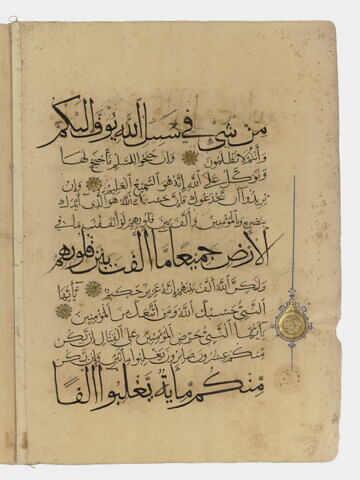 من شىء في سبيل الله يوف اليكم
وانتم لا تظلمون وان جنحوا للسلم فاجنح لها
وتوكل على الله انه هو السميع العليم وان
يريدوا ان يخدعوك فان حسبك الله هو الذي ايدك
بنصره وبالمؤمنين والف بين قلوبهم لو انفقت ما في
الارض جميعا ما الفت بين قلوبهم
ولكن الله الف بينهم انه عزيز حكيم يايها
النبي حسبك الله ومن اتبعك من المؤمنين
يايها النبي حرض المؤمنين على القتال ان يكن
منكم عشرون صابرون يغلبوا مائتين وان يكن
منكم مائة يغلبوا الفا